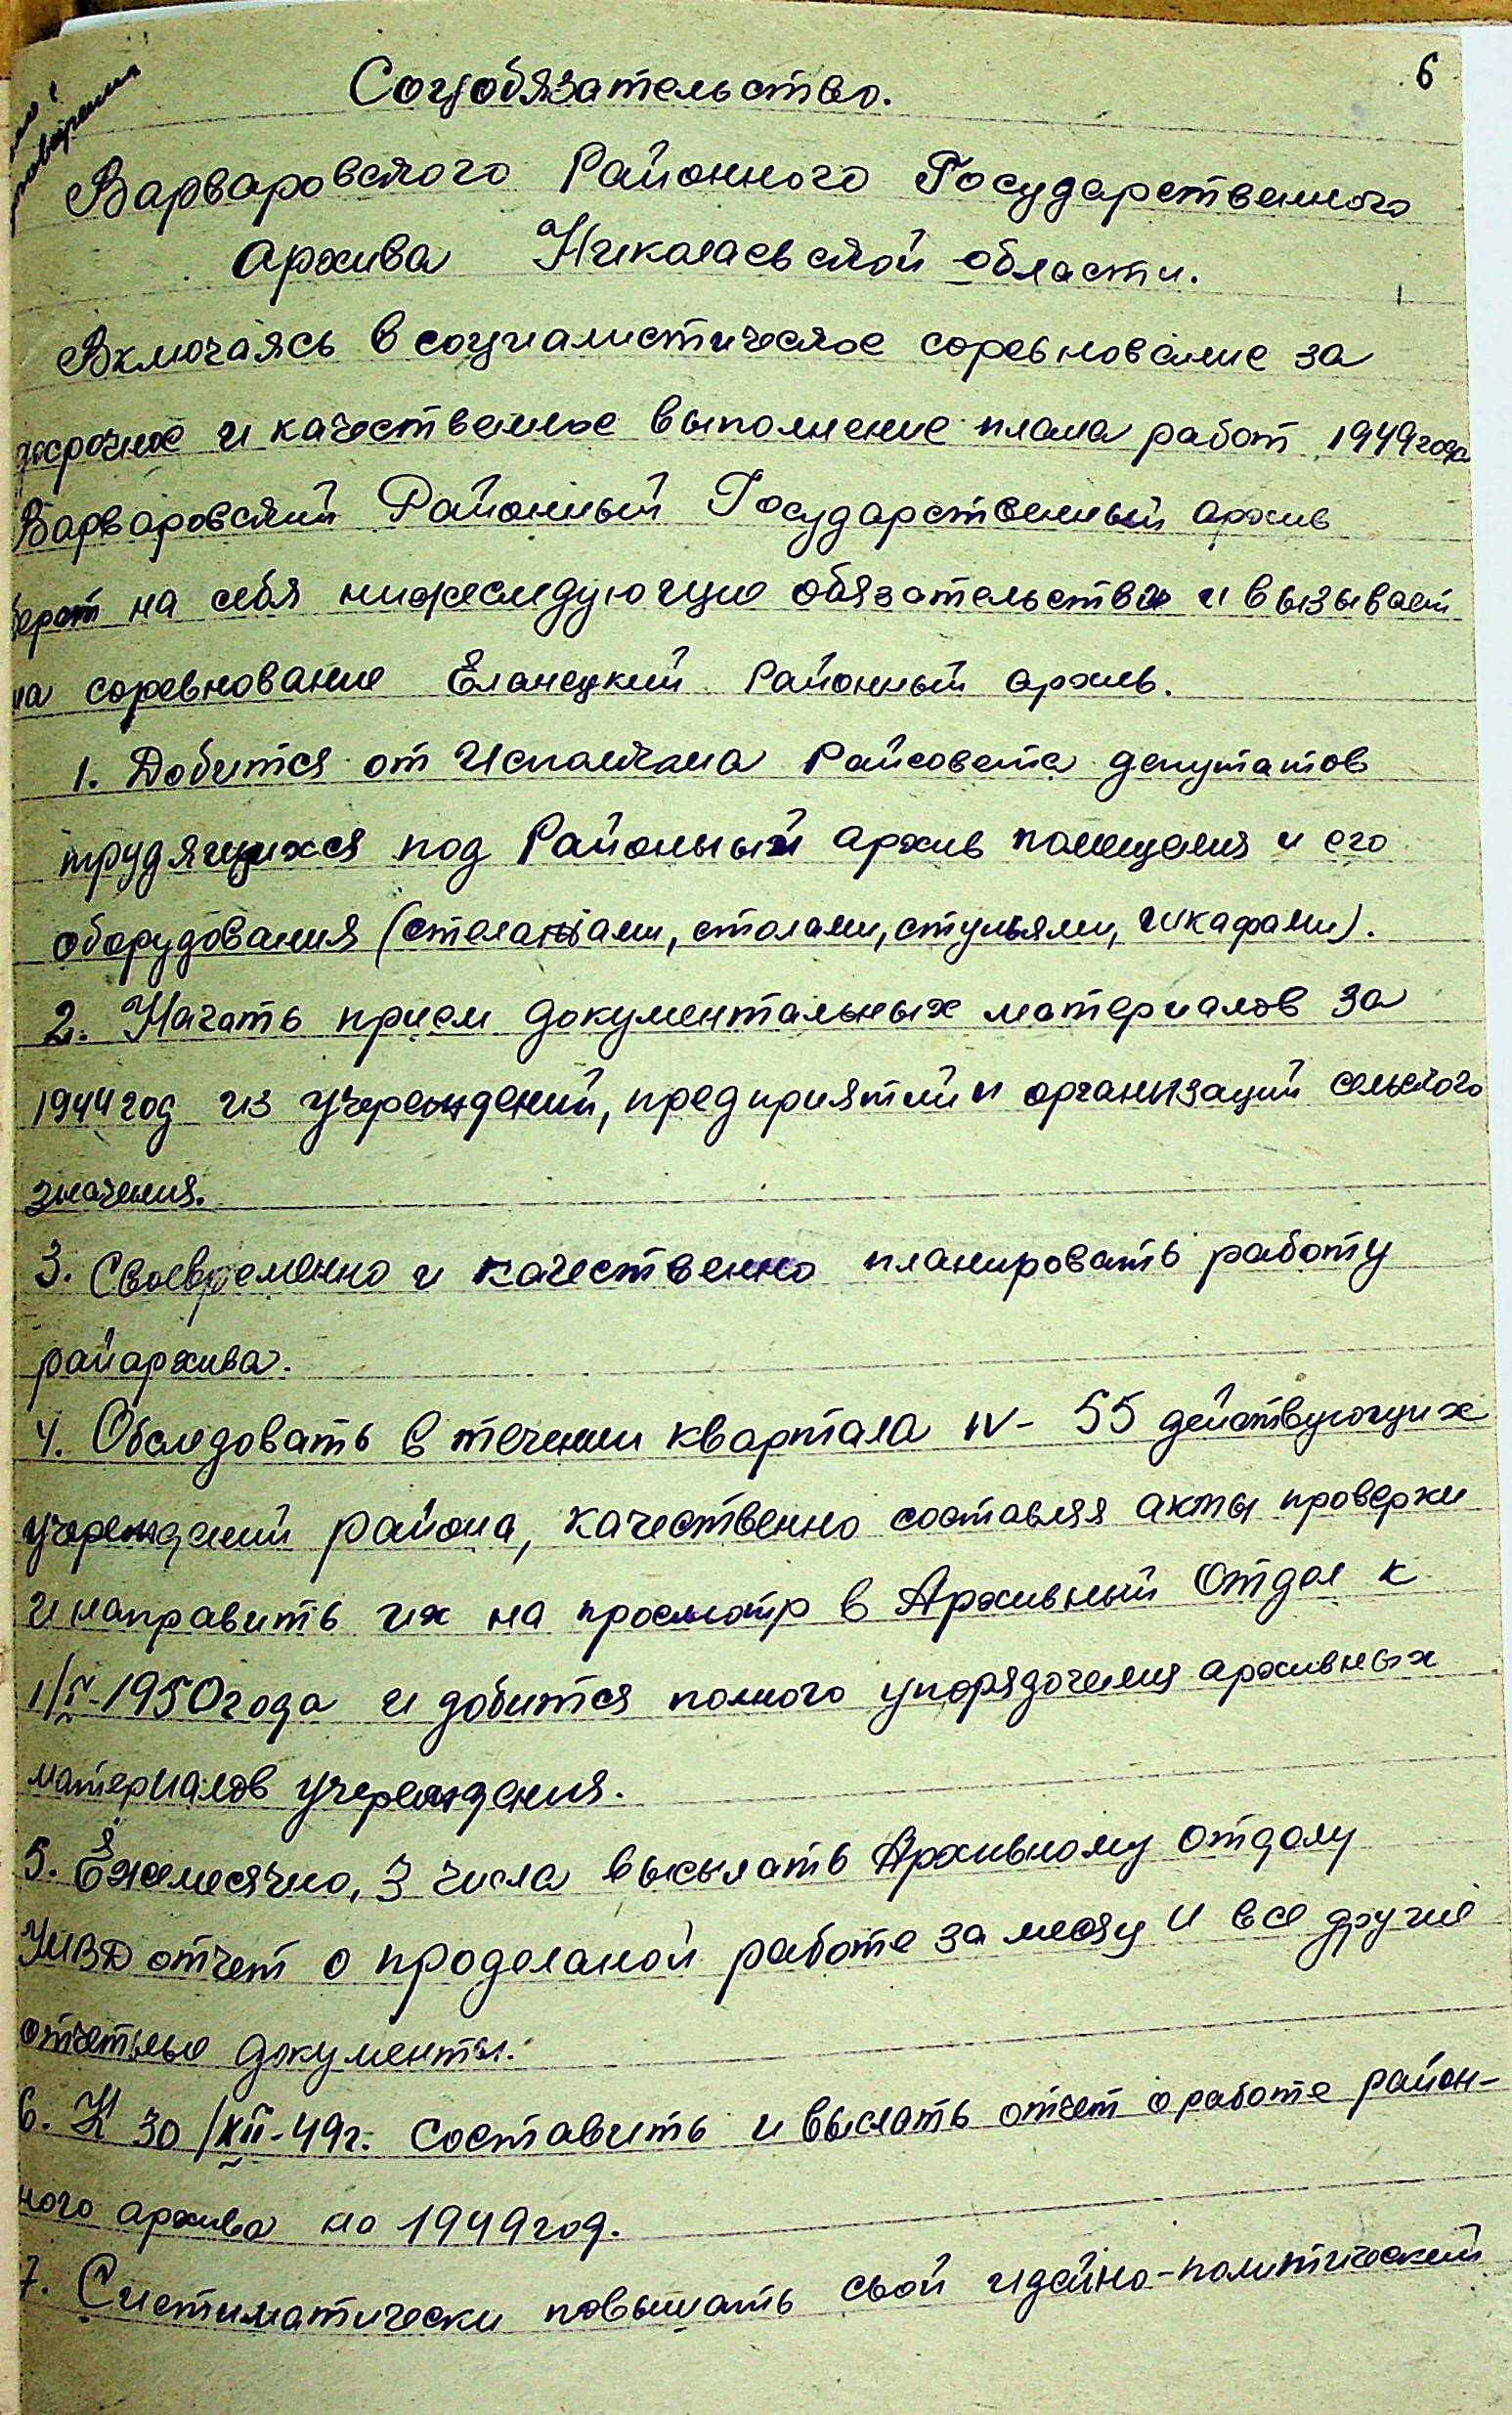 6
Соцобязательство.
Варваровского Районного Государственного
архива Николаевской области.
Включаясь в социалистическое соревнование за
досрочное и качественное выполнение плана работ 1949 года
Варваровский Районный Государственный архив
берет на себя нижеследующие обязательства и вызывает
на соревнование Еланецкий районный архив.
1. Добится от Исполкома Райсовета депутатов
трудящихся под Районый архив помещения и его
оборудования (стелажами, столами, стульями, шкафами).
2. Начать прием документальных материалов за
1944 год из учреждений, предприятий и организаций сельского
значения.
3. Своевременно и качественно планировать работу
райархива.
4. Обследовать в течении квартала IV - 55 действующих
учреждений района, качественно составляя акты проверки
и направить их на просмотр в Архивный Отдел к
1/I-1950 года и добится полного упорядочения архивных
материалов учреждения.
5. Ежемесячно, 3 числа высылать Архивному отделу
УМВД отчет о проделаной работе за месяц и все другие
отчетные документы.
6. К 30/XII-49 г. составить и выслать отчет о работе район-
ного архива на 1949 год.
7. Систиматически повышать свой идейно-политический